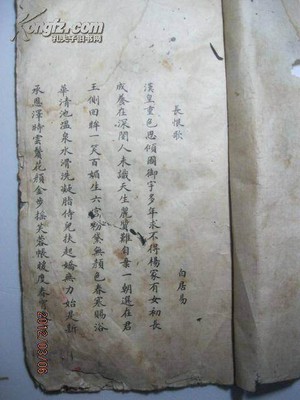 孔夫子旧书网
長恨歌
白居易
漢皇重色思傾國御宇多年求不得楊家有女初長
成養在深閨人未識天生麗質難自棄一朝選在君
王側回眸一笑百媚生六宮粉黛無顏色春寒賜浴
華清池溫泉水滑洗凝脂侍兒扶起嬌無力始是新
承恩澤時雲鬢花顏金步搖芙蓉帳暖度春宵